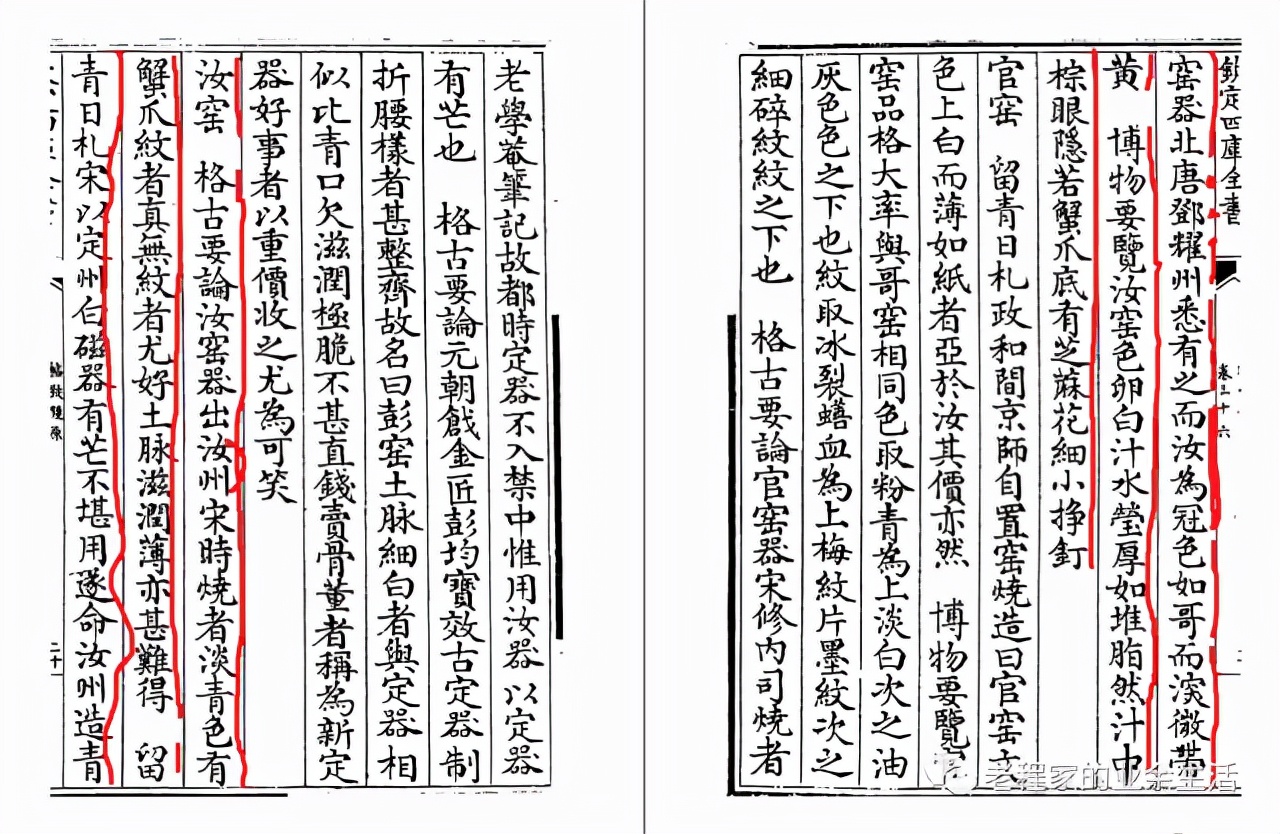 老學菴筆記故都時定器不入禁中惟用汝器以定器
有芒也　格古要論元朝戧金匠彭均寶效古定器制
折腰様者甚整齊故名曰彭窑土脉細白者與定器相
似比青口欠滋潤極脆不甚直錢賣骨董者稱為新定
器好事者以重價收之尤為可笑
汝窑　格古要論汝窑器出汝州宋時燒者淡青色有
蟹爪紋者真無紋者尤好土脉滋潤薄亦甚難得　留
青日札宋以定州白磁器有芒不堪用遂命汝州造青
欽定四庫全書
卷三十六
窑器北唐鄧耀州悉有之而汝為冠色如哥而深微帶
黄　博物要覽汝窑色卵白汁水瑩厚如堆脂然汁中
棕眼隱若蟹爪底有芝蔴花細小挣釘
官窑　留青日札政和間京師自置窑燒造曰官窑土
色上白而薄如紙者亞於汝其價亦然　博物要覽官
窑品格大率與哥窑相同色取粉青為上淡白次之油
灰色色之下也紋取冰裂鱔血為上梅紋片墨紋次之
細碎紋紋之下也　格古要論官窑器宋修内司燒者
老程家的业余生活